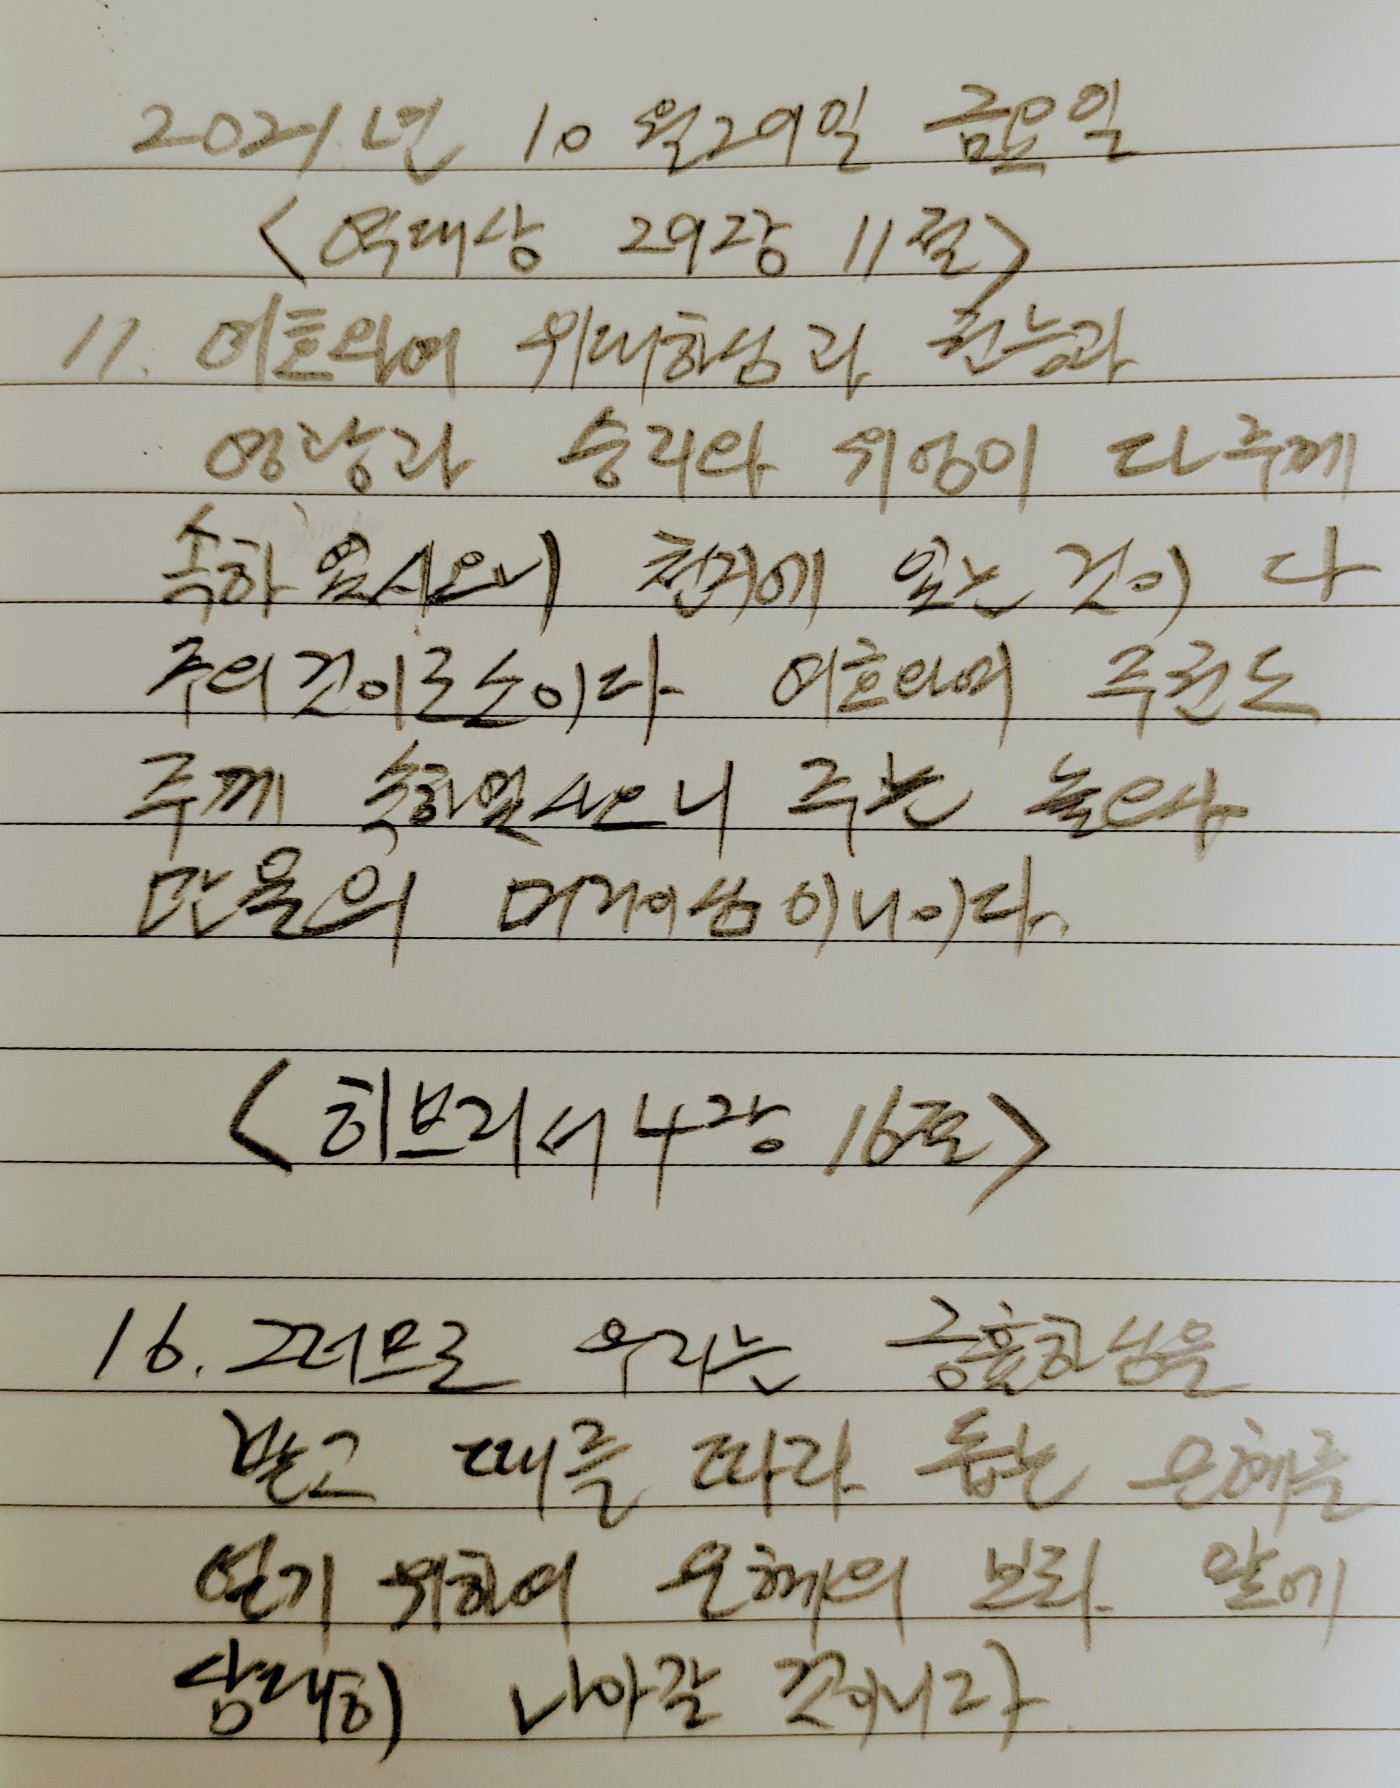 2021년 10월29일 금요일
<역대상 29장 11절>
11. 여호와여 위대하심과 권능과
영광과 승리와 위엄이 다 주께
속하였사오니 천지에 있는 것이 다
주의 것이로소이다 여호와여 주권도
주께 속하였사오니 주는 높으사
만물의 머리이심이니이다.
<히브리서 4장 16절>
16. 그러므로 우리는 긍휼하심을
받고 때를 따라 돕는 은혜를
얻기 위하여 은혜의 보좌 앞에
담대히 나아갈 것이니라